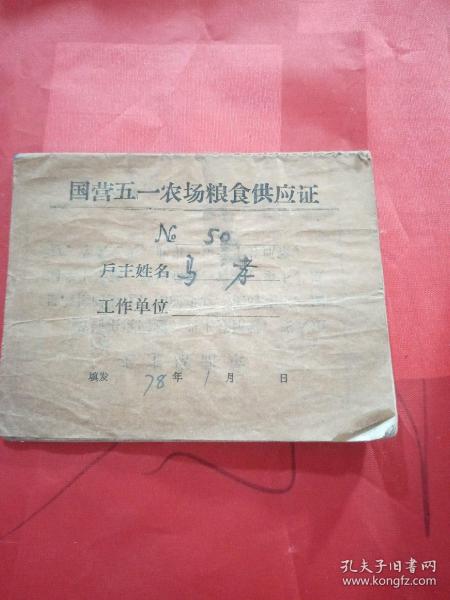 国营五一农场粮食供应证
№ 50
户主姓名 马孝
工作单位
填发 78年1月 日
孔夫子旧书网
www.kongfz.com